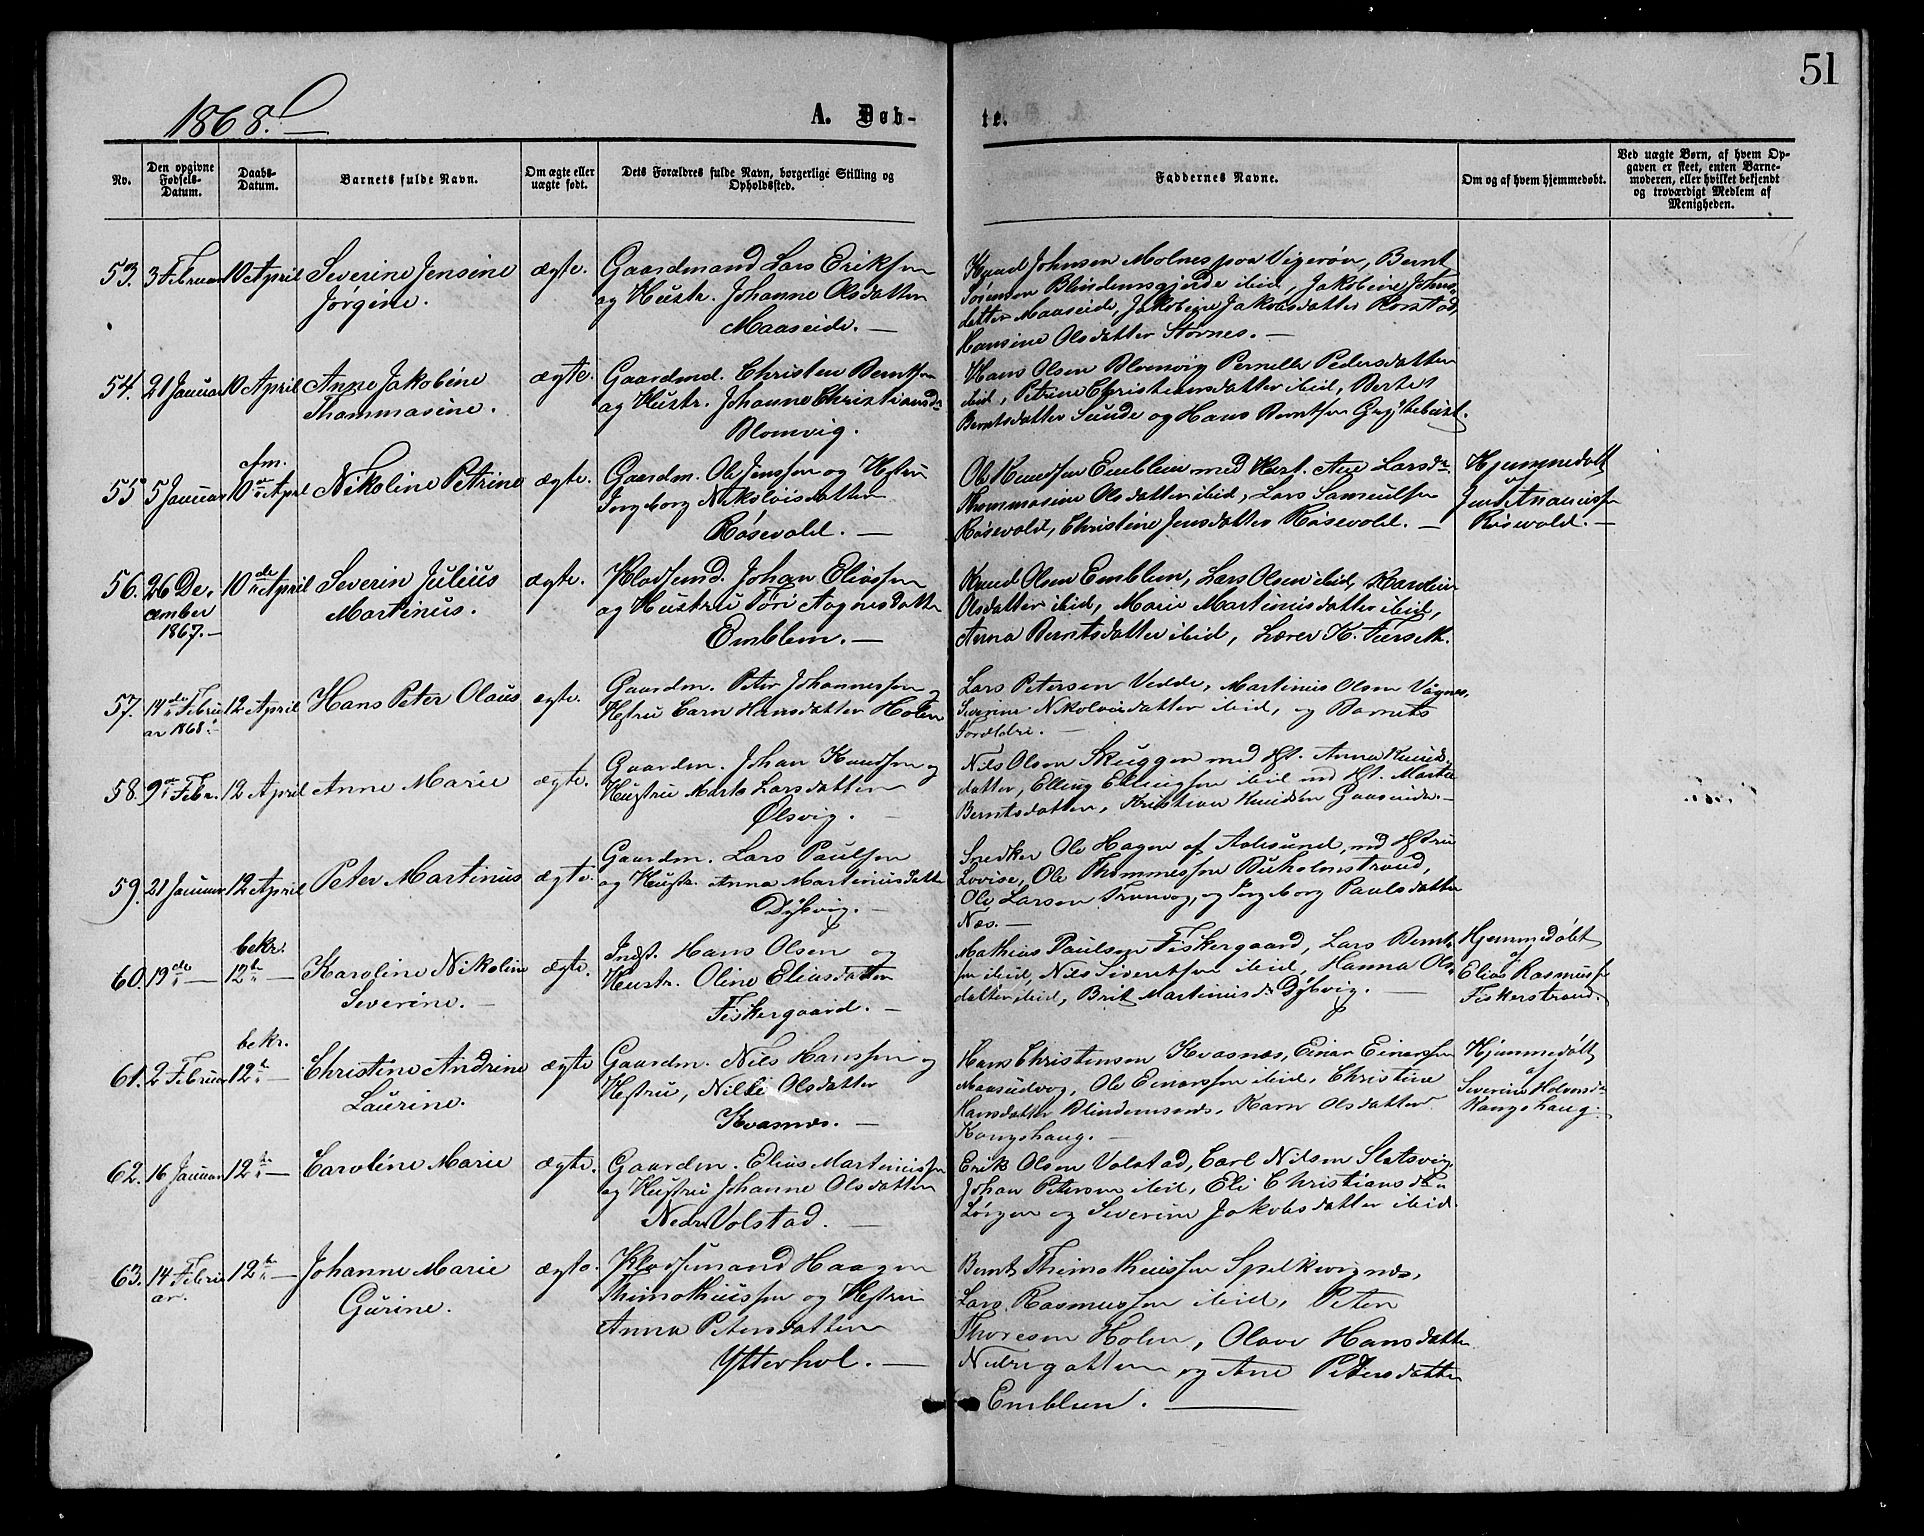 51
1868.
A. Døb-
te.
No.
Den opgivne
Fødsels-
Datum.
Daabs-
Datum.
Barnets fulde Navn.
Om ægte eller
uægte født.
Dets Forældres fulde Navn, borgerlige Stilling og
Opholdssted.
Faddernes Navne.
Om og af hvem hjemmedøbt.
Ved uægte Børn, af hvem Op-
gaven er skeet, enten Barne-
moderen, eller hvilket bekjendt
og troværdigt Medlem af
Menigheden.
53. 3 Februar 10 April Severine Jensine ægte. Gaardmand Lars Eriksen
Jørgine. og Hustr. Johanne Olsdatter
Maaseide. —
Knud Johnsen Molnes paa Vigerøen, Bernt
Sørensen Blindemsgjerde ibid, Jakobine Johns-
datter Maaseide, Jakobine Jakobsdatter Rorstad,
Hansine Olsdatter Størnes. —
54. 21 Januar 10 April Anne Jakobine ægte. Gaardmd. Christen Berntsen
Thommasine. og Hustr. Johanne Christiansdr
Blomvig.
Hans Olsen Blomvig Pernille Pedersdatter
ibid, Petrine Christensdatter ibid, Berte
Berntsdatter Sunde og Hans Berntsen
cfm.
55 5 Januar 10 April Nikoline Petrine ægte. Gaardm. Ole Jenssen og Hstru
Ingeborg Nikolaisdatter
Røsevold. —
Ole Knudsen Emblem med Hust. Ane Larsdr
Thommasine Olsdatter ibid, Lars Samuelsen
Røsevold, Christine Jensdatter Røsevold. —
Hjemmedøbt
af
Jens
Røsevold. —
56. 26 De- 10de April Severin Julius ægte. Klodsemd. Johan Eliassen
cember Martinus. og Hustru Tøri Aagesdatter
1867. — Emblem. —
Knud Olsen Emblem, Lars Olsen ibid, Karoline
Olsdatter ibid, Marie Martinusdatter ibid,
Anna Berntsdatter ibid, Lærer K.
57. 14de Febru 12 April Hans Peter Olaus ægte. Gaardm. Peter Johannessen og
ar 1868. — Hstru Carn Hansdatter Holen
Lars Petersen Vedde, Martinus Olsen Vågnes,
Severine Nikolaisdatter ibid, og Barnets
Forældre. —
58. 9de Febr. 12 April Anne Marie ægte. Gaardm. Johan Knudsen og
Hustru Marte Larsdatter
Ølsvig. —
Nils Olsen Skuggen med Hst. Anna Knuds-
datter, Elling Ellingsen ibid md Hst. Marte
Berntsdatter, Kristian Knudsen Gaaseide. —
59. 21 Januar 12 April Peter Martinus ægte. Gaardm. Lars Paulsen
og Hustr. Anna Martinusdatter
Dybvig. —
Snedker Ole Hagen af Aalesund, md Hstru
Lovise, Ole Thommessen Buholmstrand,
Ole Larsen Tranvog, og Ingeborg Paulsdatter
Næs. —
bekr.
60. 19de — 12te — Karoline Nikoline ægte. Indst. Hans Olsen og
Severine. — Hustr. Oline Eliasdatter
Fiskergaard. —
Mathias Paulsen Fiskergaard, Lars Bernt-
sen ibid, Nils Sivertsen ibid, Hanna Ols-
datter ibid, Brit Martinusdr Dybvig. —
Hjemmedøbt
af
Elias Rasmussen
Fiskerstrand.
bekr.
61. 2 Februar 12te — Christine Andrine ægte Gaardm. Nils Hanssen og
Laurine. Hstru, Nille Olsdatter
Kvasnes. —
Hans Christensen Kvasnes, Einar Einarsen
Maaseidvog, Ole Einarssen ibid, Christine
Hansdatter Blindemsnes, Karn Olsdatter
Kongshaug. —
Hjemmedøbt
af
Severine
Kongshaug.
62. 16 Januar 12te — Caroline Marie ægte. Gaardm. Elias Martinussen
og Hustru Johanne Olsdatter
Nedre Volstad. —
Erik Olsen Volstad, Carl Nilsen Slatsvig,
Johan Petersen ibid, Eli Christiansdtr
Lørgen og Severine Jakobsdatter ibid.
63. 14 Febru 12te — Johanne Marie ægte. Klodsemand Haagen
ar. Gurine. Thimotheussen og Hstru
Anna Petersdatter
Ytterhol. —
Bernt Thimotheussen Spelkvignes,
Lars Rasmussen ibid, Peter
Thoresen Holen, Olave Hansdatter
Nedregotten og Ane Petersdatter
Emblem. —